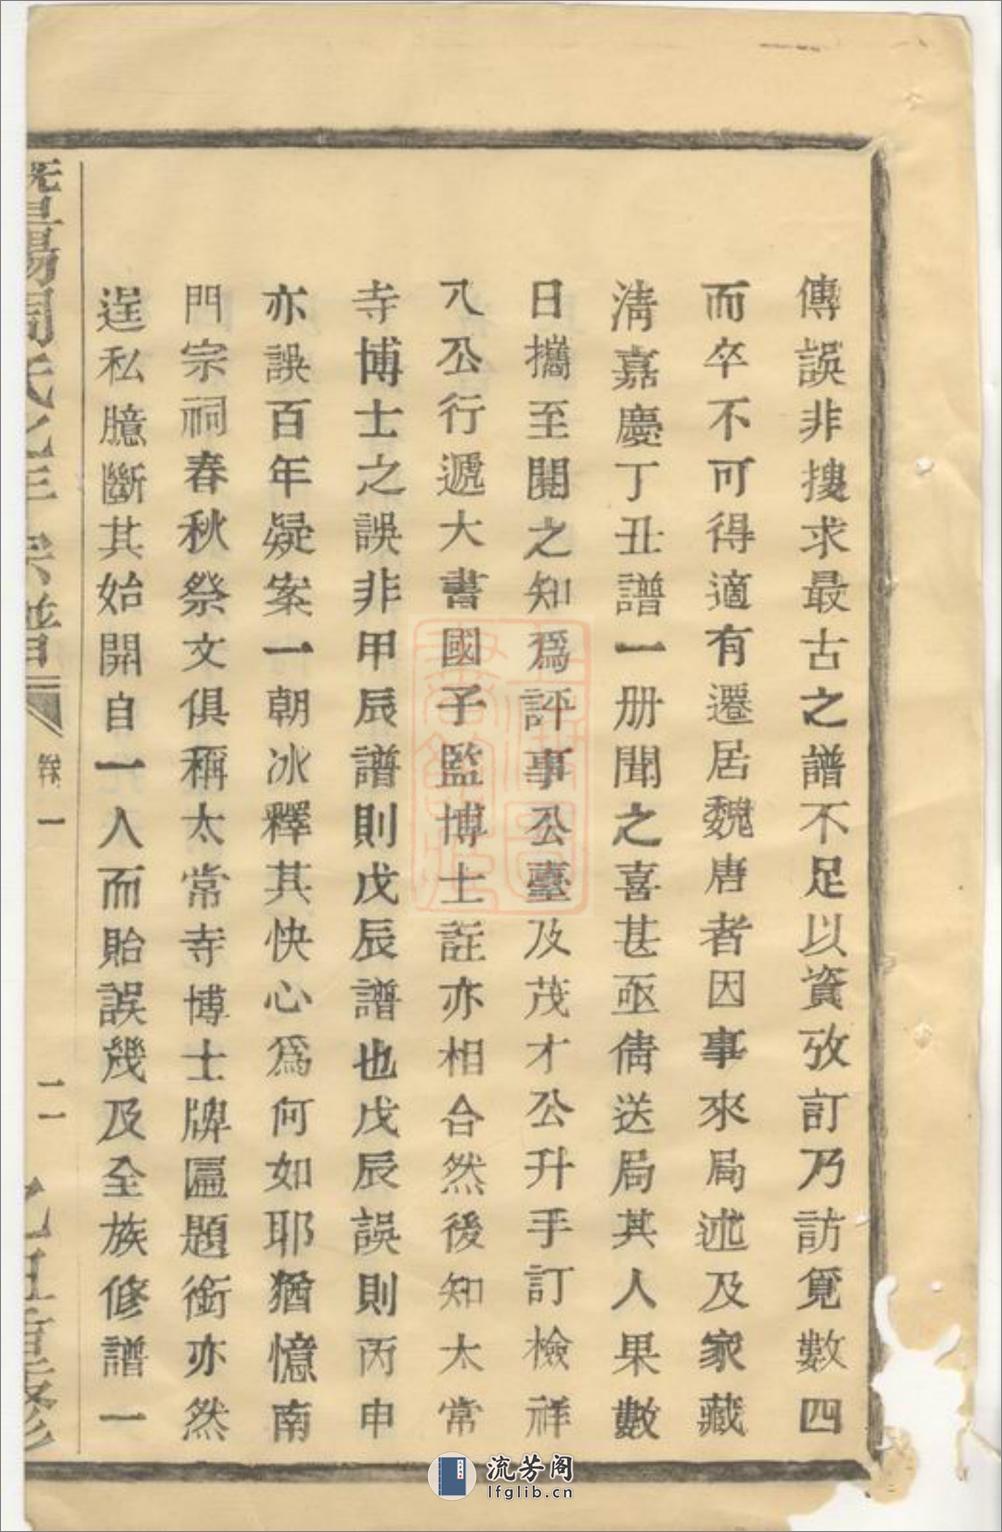 傳誤非摟求最古之譜不足以資攷訂乃訪覓數四
而卒不可得適有遷居魏唐者因事來局述及家藏
淸嘉慶丁丑譜一册聞之喜甚亟倩送局其人果數
日攜至閱之知爲評事公臺及茂才公升手訂檢祥
八公行遞大書國子監博士註亦相合然後知太常
寺博士之誤非甲辰譜則戊辰譜也戊辰誤則丙申
亦誤百年疑案一朝冰釋其快心爲何如耶猶憶南
門宗祠春秋祭文俱稱太常寺博士牌匾題銜亦然
逞私臆斷其始開自一人而貽誤幾及全族修譜一
暨陽周氏乙年宗譜 卷一 二 乙丑重修
流芳阁
lfglib.cn